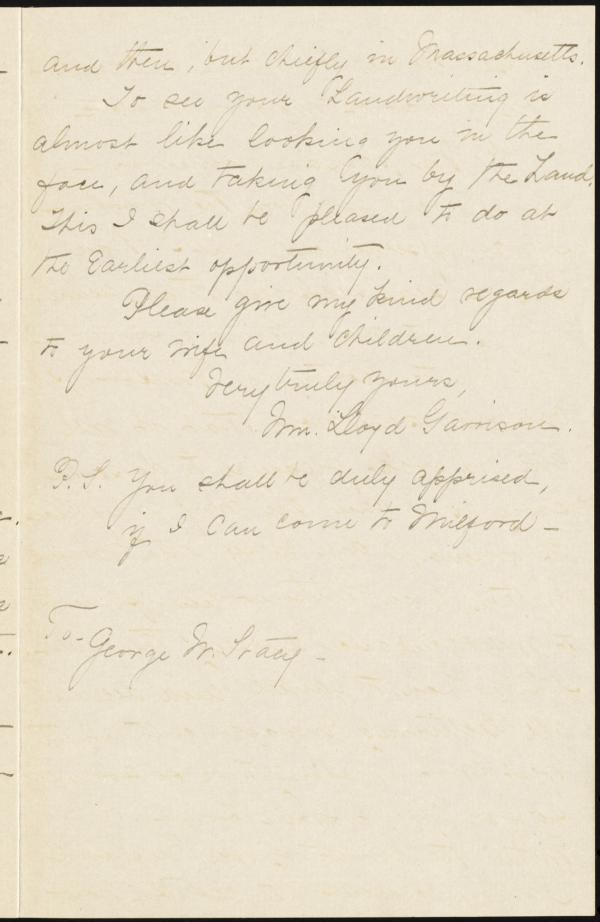 and then, but chiefly in Massachusetts.
To see your handwriting is
almost like looking you in the
face, and taking you by the hand.
This I shall be pleased to do at
the earliest opportunity.
Please give my kind regards
to your wife and children.
Very truly yours,
Wm. Lloyd Garrison.
P.S. You shall be duly apprised,
if I can come to Milford –
To– George W. Stacy –